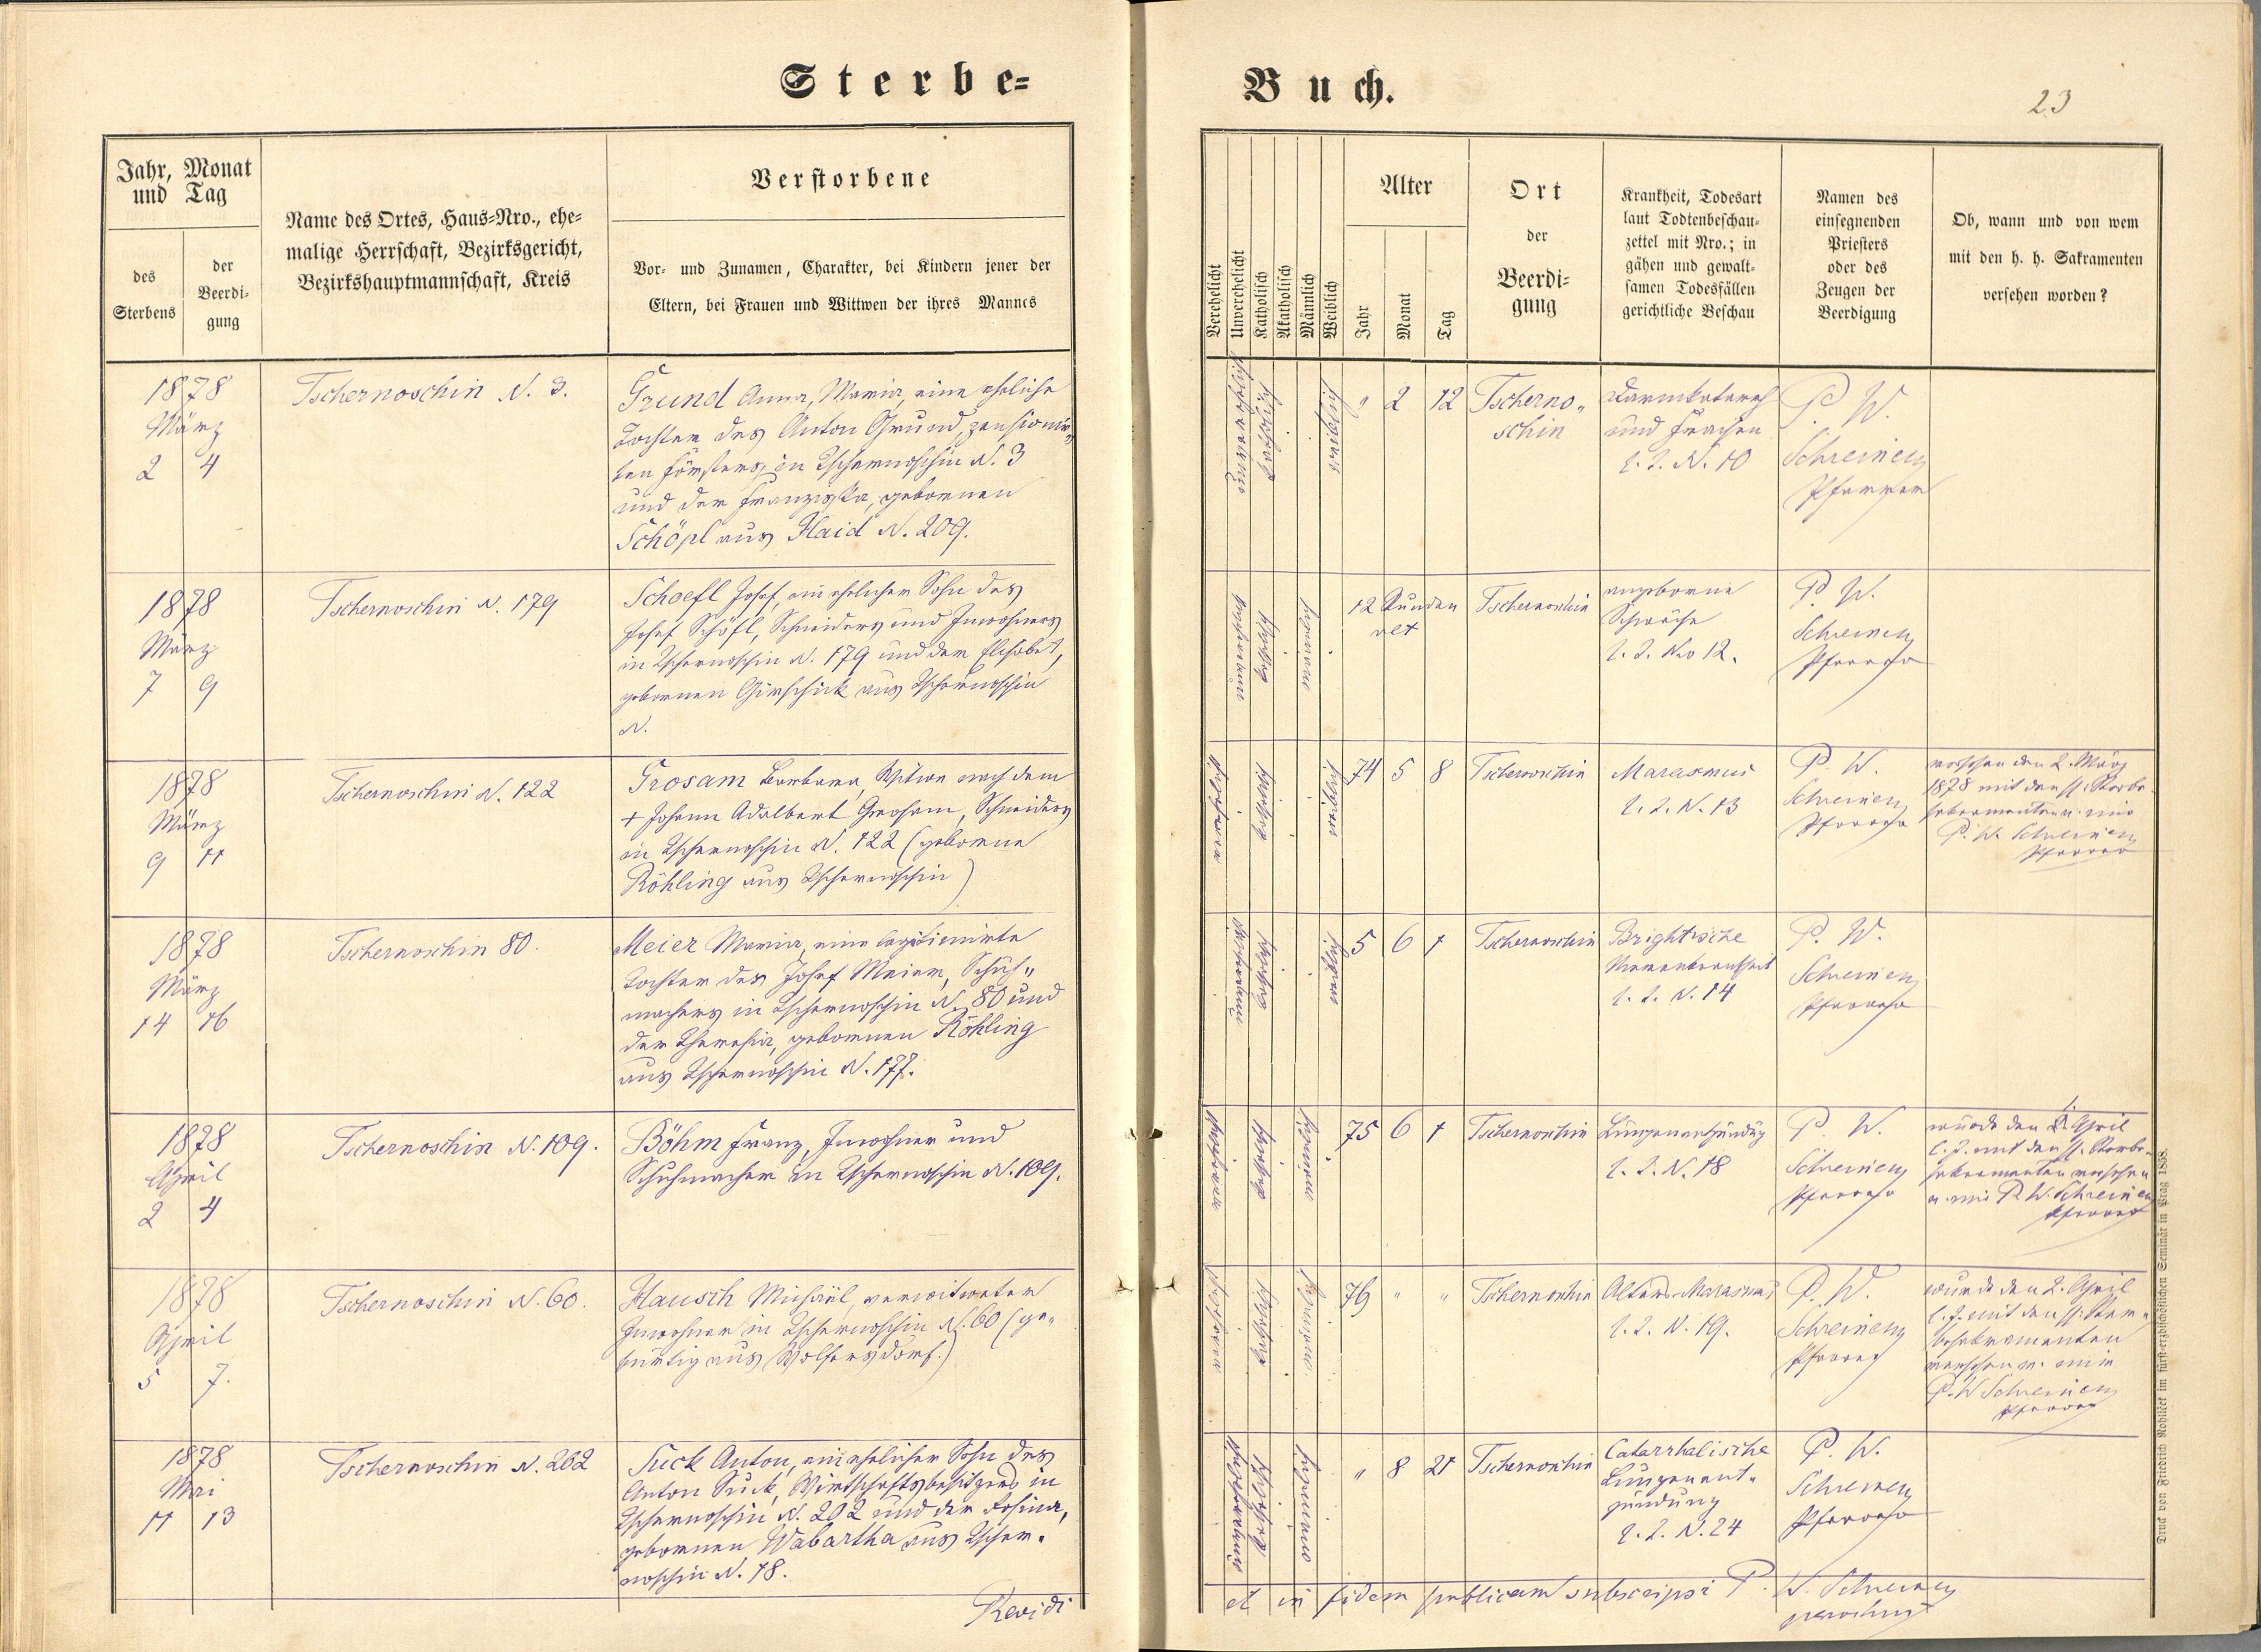 Sterbe=
Buch.
23
Jahr, Monat
und Tag
des
Sterbens
der
Beerdi-
gung
Name des Ortes, Haus=Nro., ehe=
malige Herrschaft, Bezirksgericht,
Bezirkshauptmannschaft, Kreis
Verstorbene
Vor- und Zunamen, Charakter, bei Kindern jener der
Eltern, bei Frauen und Wittwen der ihres Mannes
Verehelicht
Unverehelicht
Katholisch
Akatholisch
Männlich
Weiblich
Alter
Jahr
Monat
Tag
Ort
der
Beerdi-
gung
Krankheit, Todesart
laut Todtenbeschau-
zettel mit Nro.; in
gähen und gewalt-
samen Todesfällen
gerichtliche Beschau
Namen des
einsegnenden
Priesters
oder des
Zeugen der
Beerdigung
Ob, wann und von wem
mit den h. h. Sakramenten
versehen worden?
1878
März
2 4
Tschernoschin N. 3.
Grund Anna, Maria, eine eheliche
Tochter des Anton Grund, pensionir„
ten Försters, in Tschernoschin N. 3
und der Franziska, gebornen
Schöpl aus Haid N. 209.
unverehelicht
katholisch
weiblich
„ 2 12
Tscherno„
schin
Darmkatarrh
und Fraisen
l. Z. N. 10
P. W.
Schreiner
Pfarrer
1878
März
7 9
Tschernoschin N. 179
Schoefl Josef, ein ehelicher Sohn des
Josef Schöfl, Schneiders und Inwohners
in Tschernoschin N. 179 und der Elisabet,
gebornen Girschick aus Tschernoschin
N.
unverehelicht
katholisch
männlich
12 Stunden
alt
Tschernoschin
angeborne
Schwäche
l. Z. No 12.
P. W.
Schreiner
Pfarrer
1878
März
9 11
Tschernoschin N. 122
Grosam Barbara, Witwe nach dem
+ Johann Adalbert Grosam, Schneiders
in Tschernoschin N. 122 (geborne
Röhling aus Tschernoschin)
verehelicht
katholisch
weiblich
74 5 8
Tschernoschin
Marasmus
l. Z. N. 13
P. W.
Schreiner
Pfarrer
versehen den 2. März
1878 mit den hl. Sterbe
sakramenten v. mir
P. W. Schreiner
Pfarrer
1878
März
14 16
Tschernoschin 80.
Meier Maria, eine legitimirte
Tochter des Josef Meier, Schuh„
machers in Tschernoschin N. 80 und
der Theresia, gebornen Röhling
aus Tschernoschin N. 177.
unverehelicht
katholisch
weiblich
5 6 1
Tschernoschin
Brightsche
Nierenkrankheit
l. Z. N. 14
P. W.
Schreiner
Pfarrer
1878
April
2 4
Tschernoschin N. 109.
Böhm Franz, Inwohner und
Schuhmacher in Tschernoschin N. 109.
verehelicht
katholisch
männlich
75 6 1
Tschernoschin
Lungenentzündug
l. Z. N. 18
P. W.
Schreiner
Pfarrer
wurde den 1. April
l. J. mit den hl. Sterbe„
sakramenten versehen
v. mir P. W. Schreiner
Pfarrer
1878
April
5 7.
Tschernoschin N. 60.
Hausch Michael, verwitweter
Inwohner in Tschernoschin N. 60 (ge„
bürtig aus Wolfersdorf.)
verehelicht
katholisch
männlich
76 „ „
Tschernoschin
Alters-Marasmus
l. Z. N. 19.
P. W.
Schreiner
Pfarrer
wurde den 2. April
l. J. mit den hl. Ster„
besakramenten
versehen v. mir
P. W Schreiner
Pfarrer
1878
Mai
11 13
Tschernoschin N. 202
Suck Anton, ein ehelicher Sohn des
Anton Suck, Wirtschaftsbesitzers in
Tschernoschin N. 202 und der Rosina,
gebornen Wabartha aus Tscher„
noschin N. 18.
unverehelicht
katholisch
männlich
„ 8 21
Tschernoschin
Catarrhalische
Lungenent„
zündung
l. Z. N. 24
P. W.
Schreiner
Pfarrer
Revidi
et in fidem publicam subscripsi P. W. Schreiner
parochus
Druck von Friedrich Rohliček im fürst-erzbischöflichen Seminär in Prag 1858.